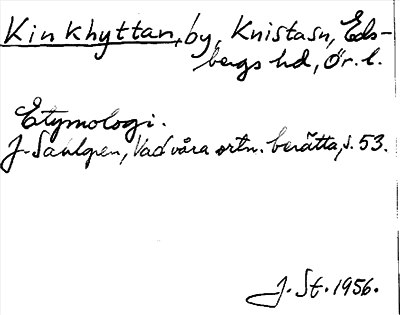 Kinkhyttan, by, Knistasn, Eds-
bergs hd, Ör. l.
Etymologi.
J. Sahlgren, Vad våra ortn. berätta, s. 53.
J. St. 1956.